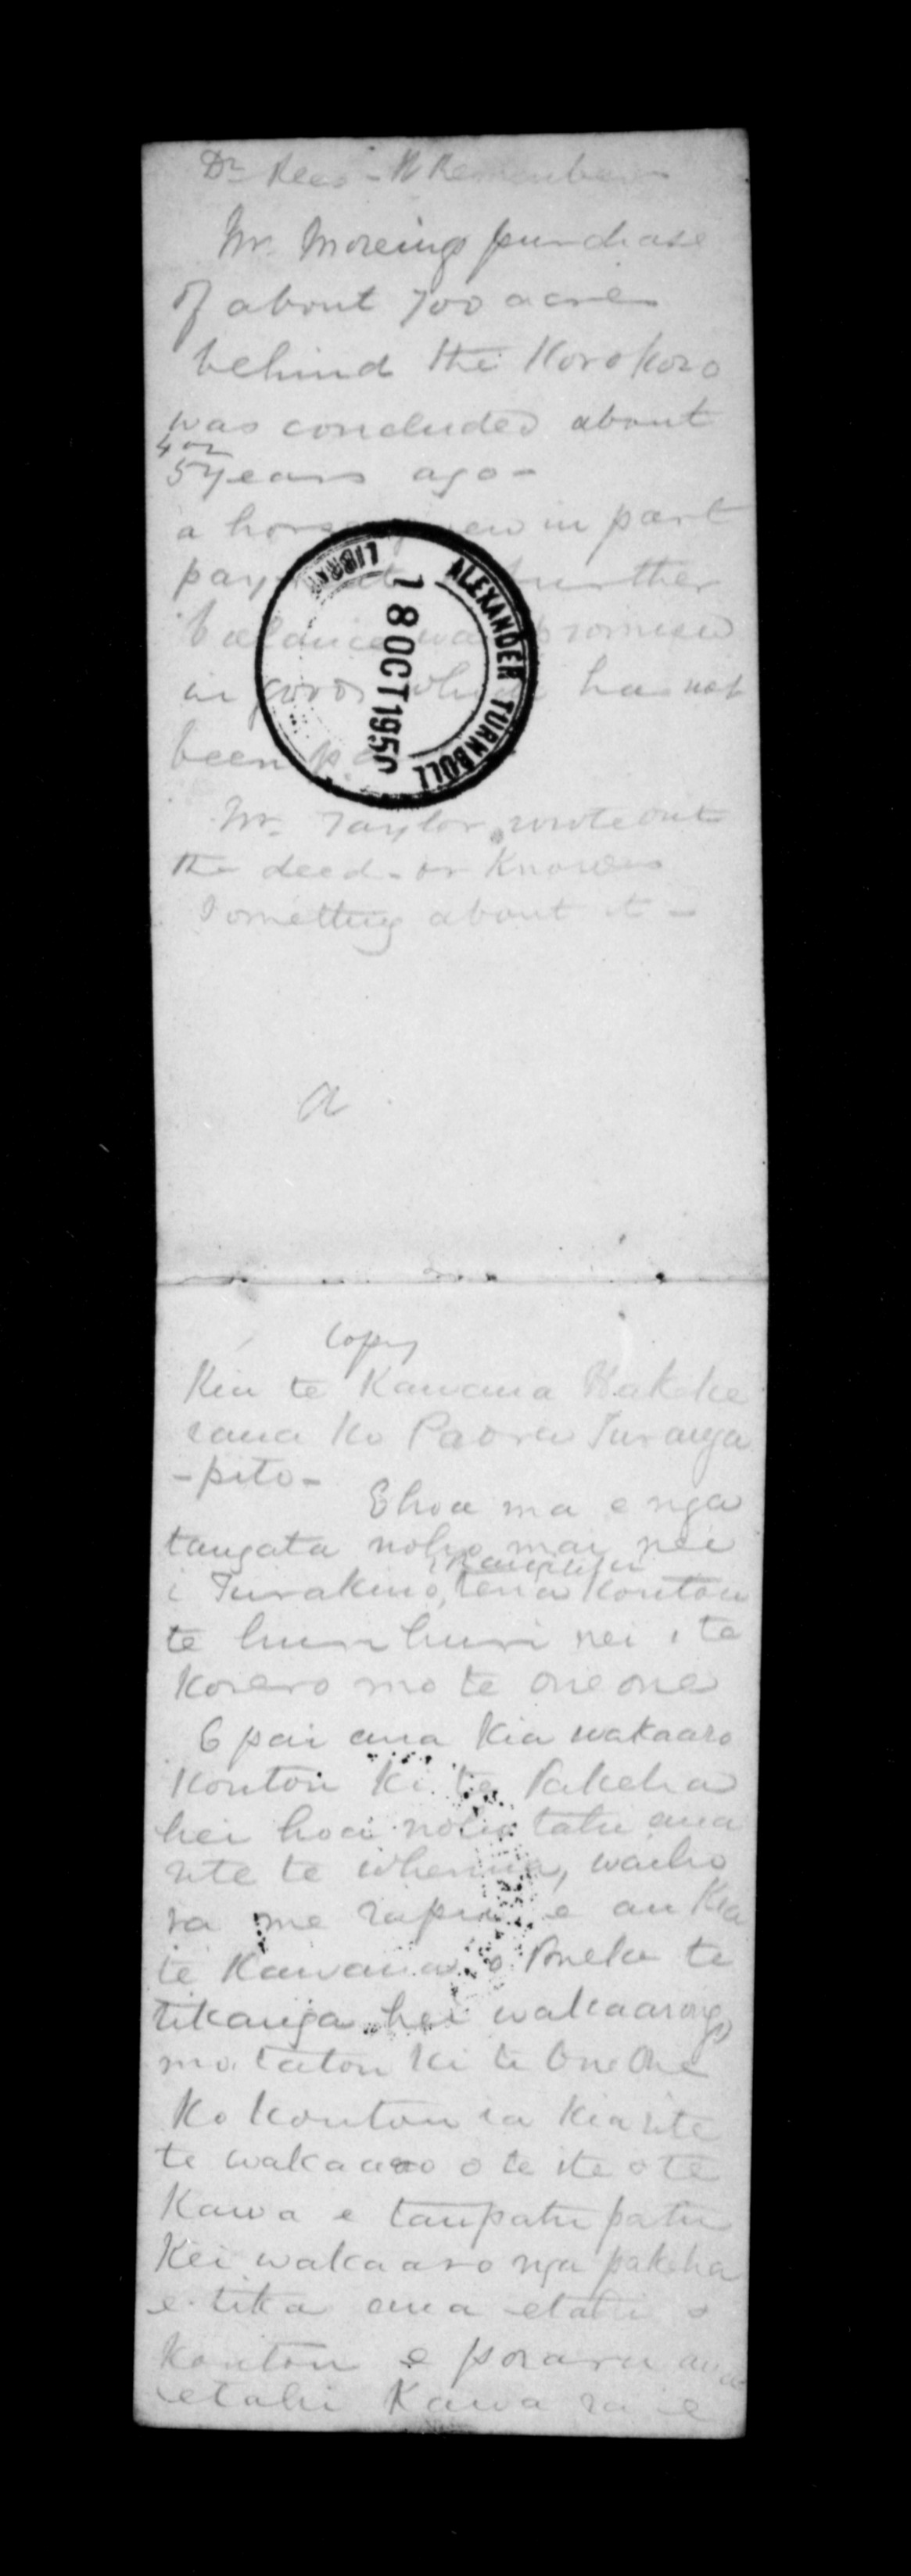 Dr Rees - Remembers
Mr. Moreing purchase
of about 700 acres
behind the Korokoro
was concluded about
4 or
5 years ago -
a horse given in part
payment further
balance was promised
in goods which has not
been
Mr. Taylor wrote out
the deed - or Knows
Something about it -
LIBRARY
ALEXANDER TURNBULL
18 OCT 1950
a
Copy
Kia te Kawana Wakeke
raua ko Paora Turanga
- pito -
Ehoa ma e nga
tangata noho mai nei
i Turakino, tena Koutou
te huri huri nei i te
Korero mo te one one
E pai ana Kia wakaaro
Koutou Ki te Pakeha
hei hoa noho tahi ana
rite te whenua, waiho
ra me rapu e au Kia
te Kawana o Poneke te
tikanga hei wakaaronga
mo tatou Ki te One One
Ko Koutou ia kia rite
te wakaaro o te iti o te
Kawa e taupatupatu
Kei wakaaro nga pakeha
e tika ana etahi o
Koutou e poraru ana
etahi Kawa ra e